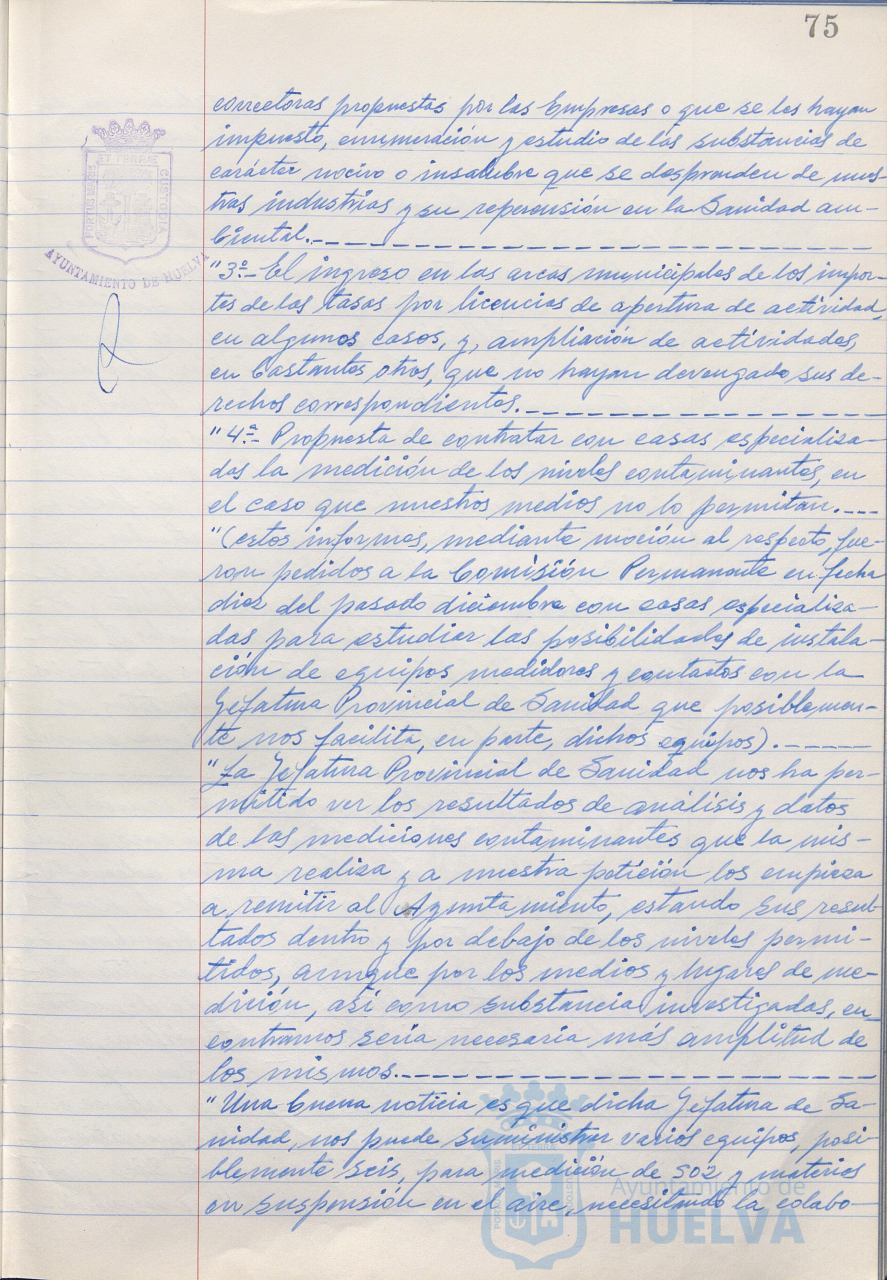 75
correctoras propuestas por las Empresas o que se les hayan
impuesto, enumeración y estudio de las substancias de
carácter nocivo o insalubre que se desprenden de nues-
tras industrias y su repercusión en la Sanidad am-
biental.
"3º.- El ingreso en las arcas municipales de los impor-
tes de las tasas por licencias de apertura de actividad,
en algunos casos, y, ampliación de actividades,
en bastantes otros, que no hayan devengado sus de-
rechos correspondientes.
"4ª.- Propuesta de contratar con casas especializa-
das la medición de los niveles contaminantes, en
el caso que nuestros medios no lo permitan.
"(estos informes, mediante moción al respecto, fue-
ron pedidos a la Comisión Permanente en fecha
diez del pasado diciembre con casas especializa-
das para estudiar las posibilidades de instala-
ción de equipos medidores y contactos con la
Jefatura Provincial de Sanidad que posiblemen-
te nos facilita, en parte, dichos equipos).
"La Jefatura Provincial de Sanidad nos ha per-
mitido ver los resultados de análisis y datos
de las mediciones contaminantes que la mis-
ma realiza y a nuestra petición los empieza
a remitir al Ayuntamiento, estando sus resul-
tados dentro y por debajo de los niveles permi-
tidos, aunque por los medios y lugares de me-
dición, así como substancia investigadas, en-
contramos sería necesaria más amplitud de
los mismos.
"Una buena noticia es que dicha Jefatura de Sa-
nidad, nos puede suministrar varios equipos, posi-
blemente seis, para medición de SO2 y materias
en suspensión en el aire, necesitando la colabo-
PORTUS MARIS
ET TERRAE
CUSTODIA
AYUNTAMIENTO DE HUELVA
Ayuntamiento de
HUELVA